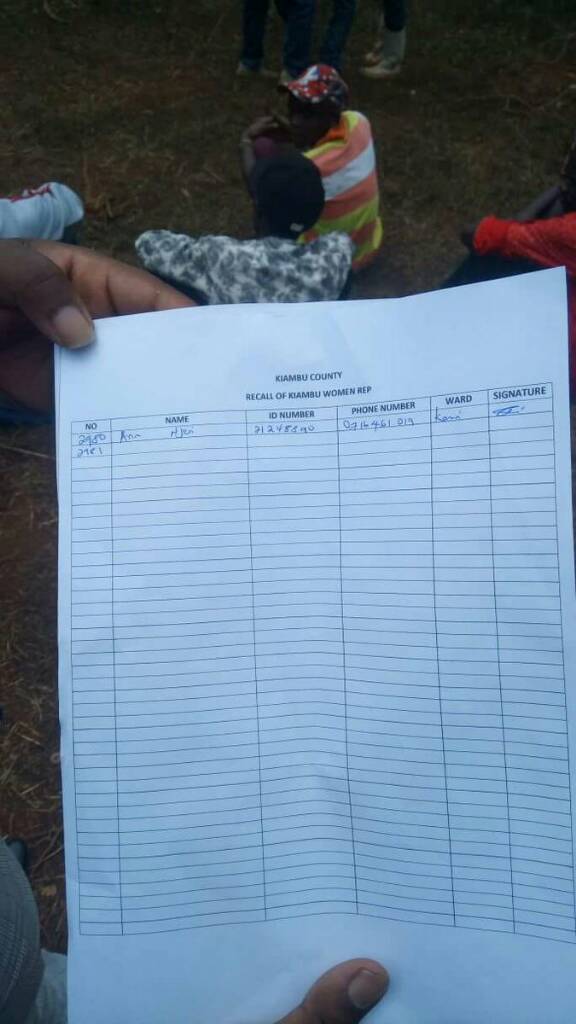 KIAMBU COUNTY
RECALL OF KIAMBU WOMEN REP
NO NAME ID NUMBER PHONE NUMBER WARD SIGNATURE
2980 Ann 0716461019
2981